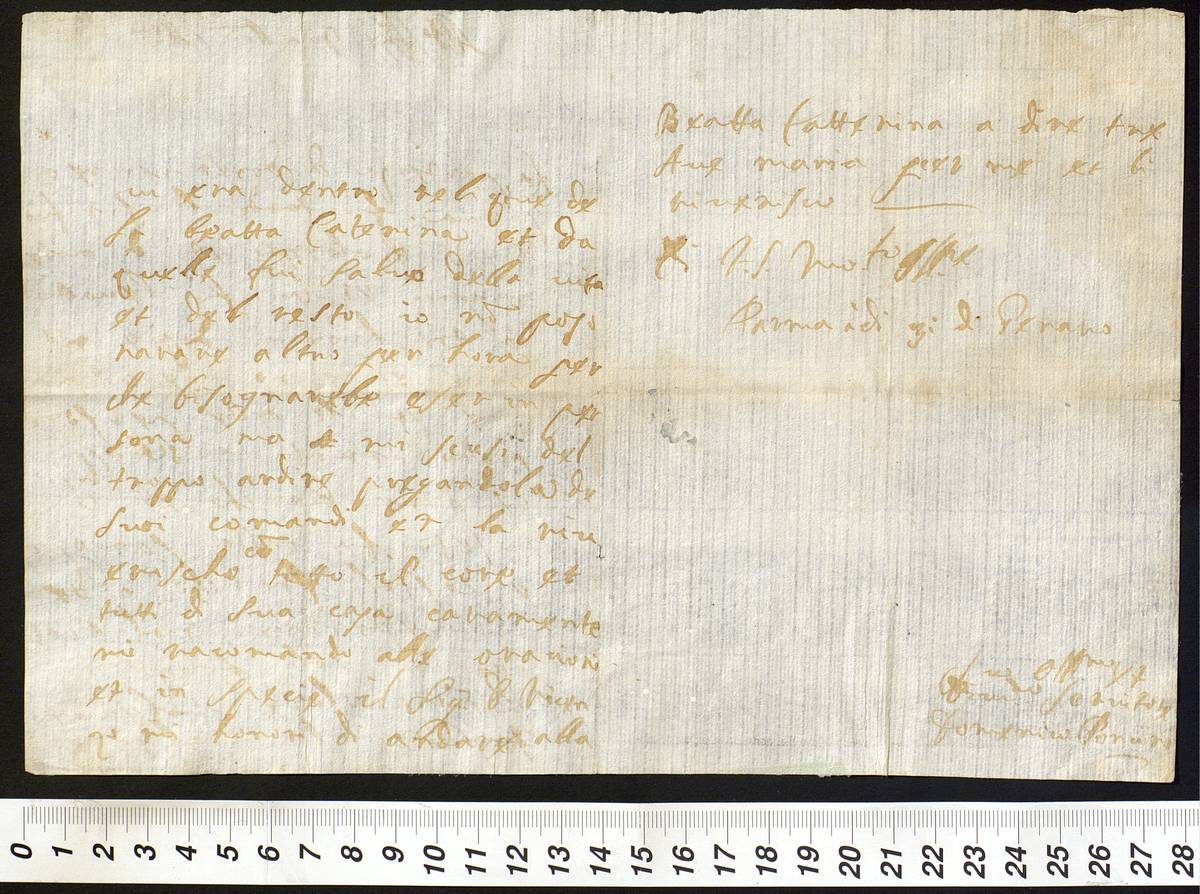 vi era dentro reliquie de
la beatta Caterina et da
quelle fui salvo della vita
et del resto io nõ poso
narare altro per hora per
che bisognarebe eser in per
sona ma mi scusi del
troppo ardire pregandola de
suoi comandi et la riv
erischo cõ tutto il core et
tutti di sua casa caramente
mi racomando alle oracioni
et in specie il Sig.
nõ honori di andare alla
Beatta Catterina a dire tre
Ave maria per me et li
riverisco
Parma adi di Genaro
Suo
servitore
Domenico
0 1 2 3 4 5 6 7 8 9 10 11 12 13 14 15 16 17 18 19 20 21 22 23 24 25 26 27 28